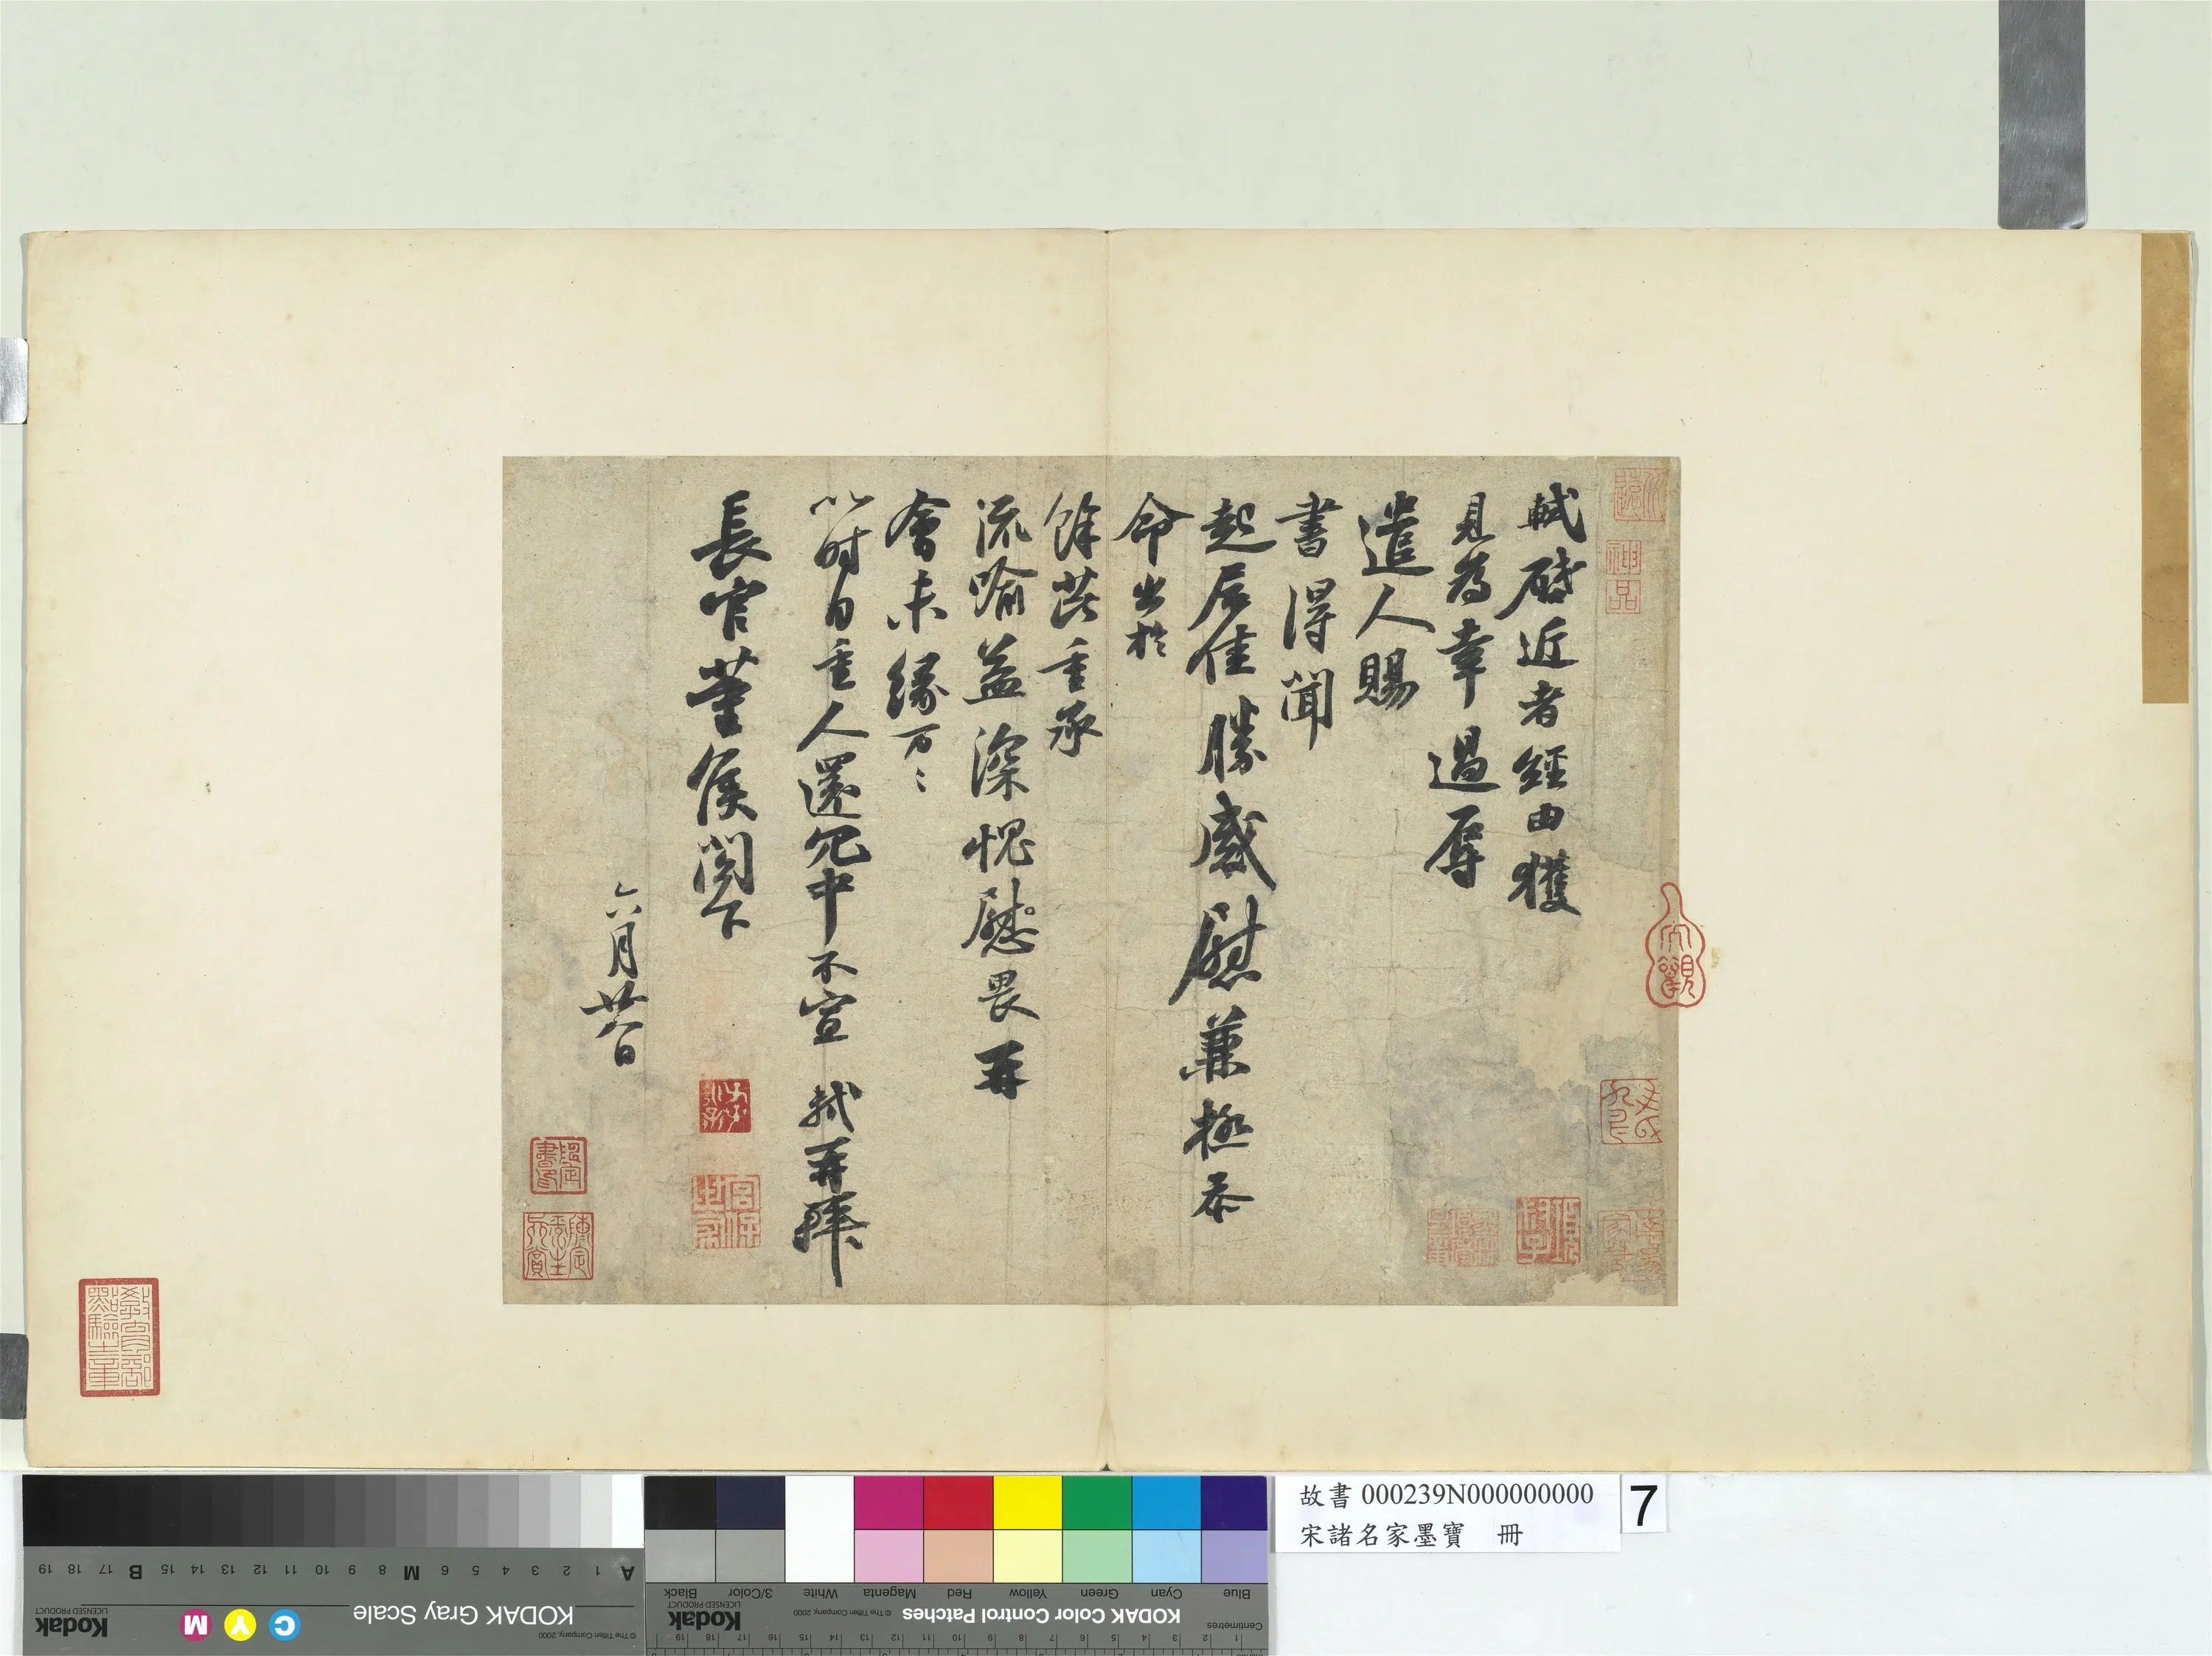 軾啓近者經由獲
見為幸過辱
遣人賜
書得聞
起居佳勝感慰兼極忝
命出於
餘芘重承
流喻益深愧畏再
會未緣万〻
以时自重人還冗中不宣 軾再拜
長官董侯閤下
六月廿八日
神品
大觀
教育部
點驗之章
故書 000239N000000000
宋諸名家墨寶 冊
7
KODAK Gray Scale
Kodak
LICENSED PRODUCT
© The Tiffen Company, 2000
C Y M
A 1 2 3 4 5 6 M 8 9 10 11 12 13 14 15 B 17 18 19
Blue Cyan Green Yellow Red Magenta White 3/Color Black
KODAK Color Control Patches
© The Tiffen Company, 2000
Kodak
LICENSED PRODUCT
Centimetres
1 2 3 4 5 6 7 8 9 10 11 12 13 14 15 16 17 18 19